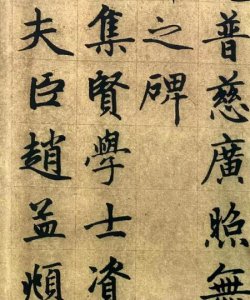 普慈廣照無
之碑
集賢學士資
夫臣趙孟頫